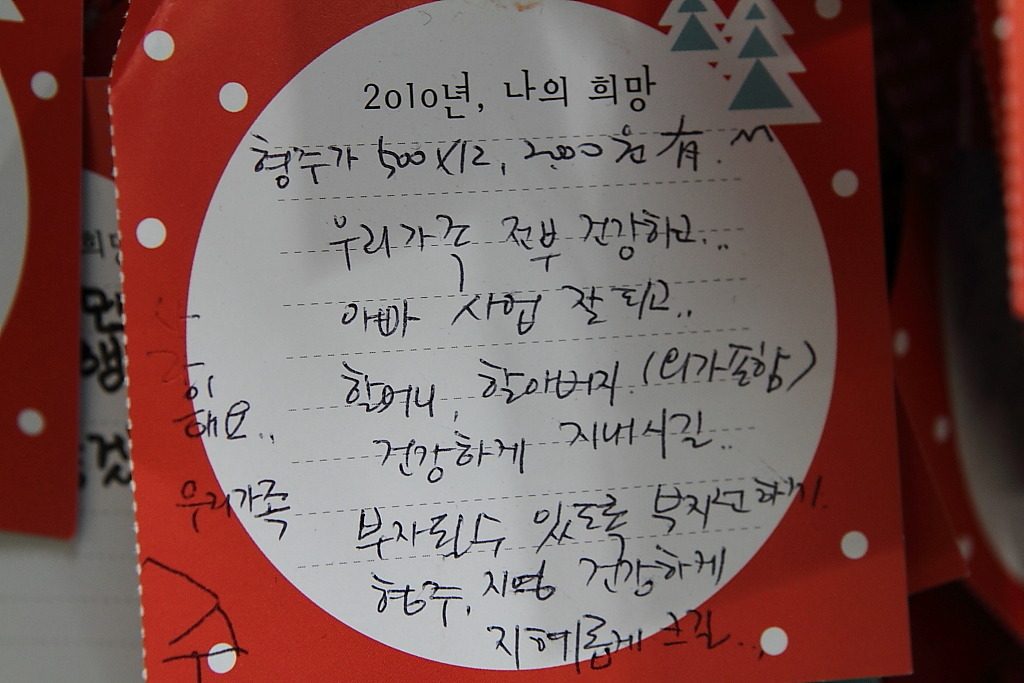 2010년, 나의 희망
형주가 500X12, 2,000원 有.
우리가족 전부 건강하고...
아빠 사업 잘 되고..
할머니, 할아버지 (외가포함)
건강하게 지내시길..
부자될수 있도록
형주, 지영 건강하게
지혜롭게 크길...
해요..
우리가족